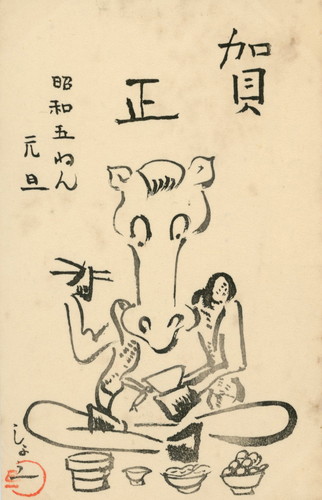 賀
正
昭和五ねん
元旦
しょう